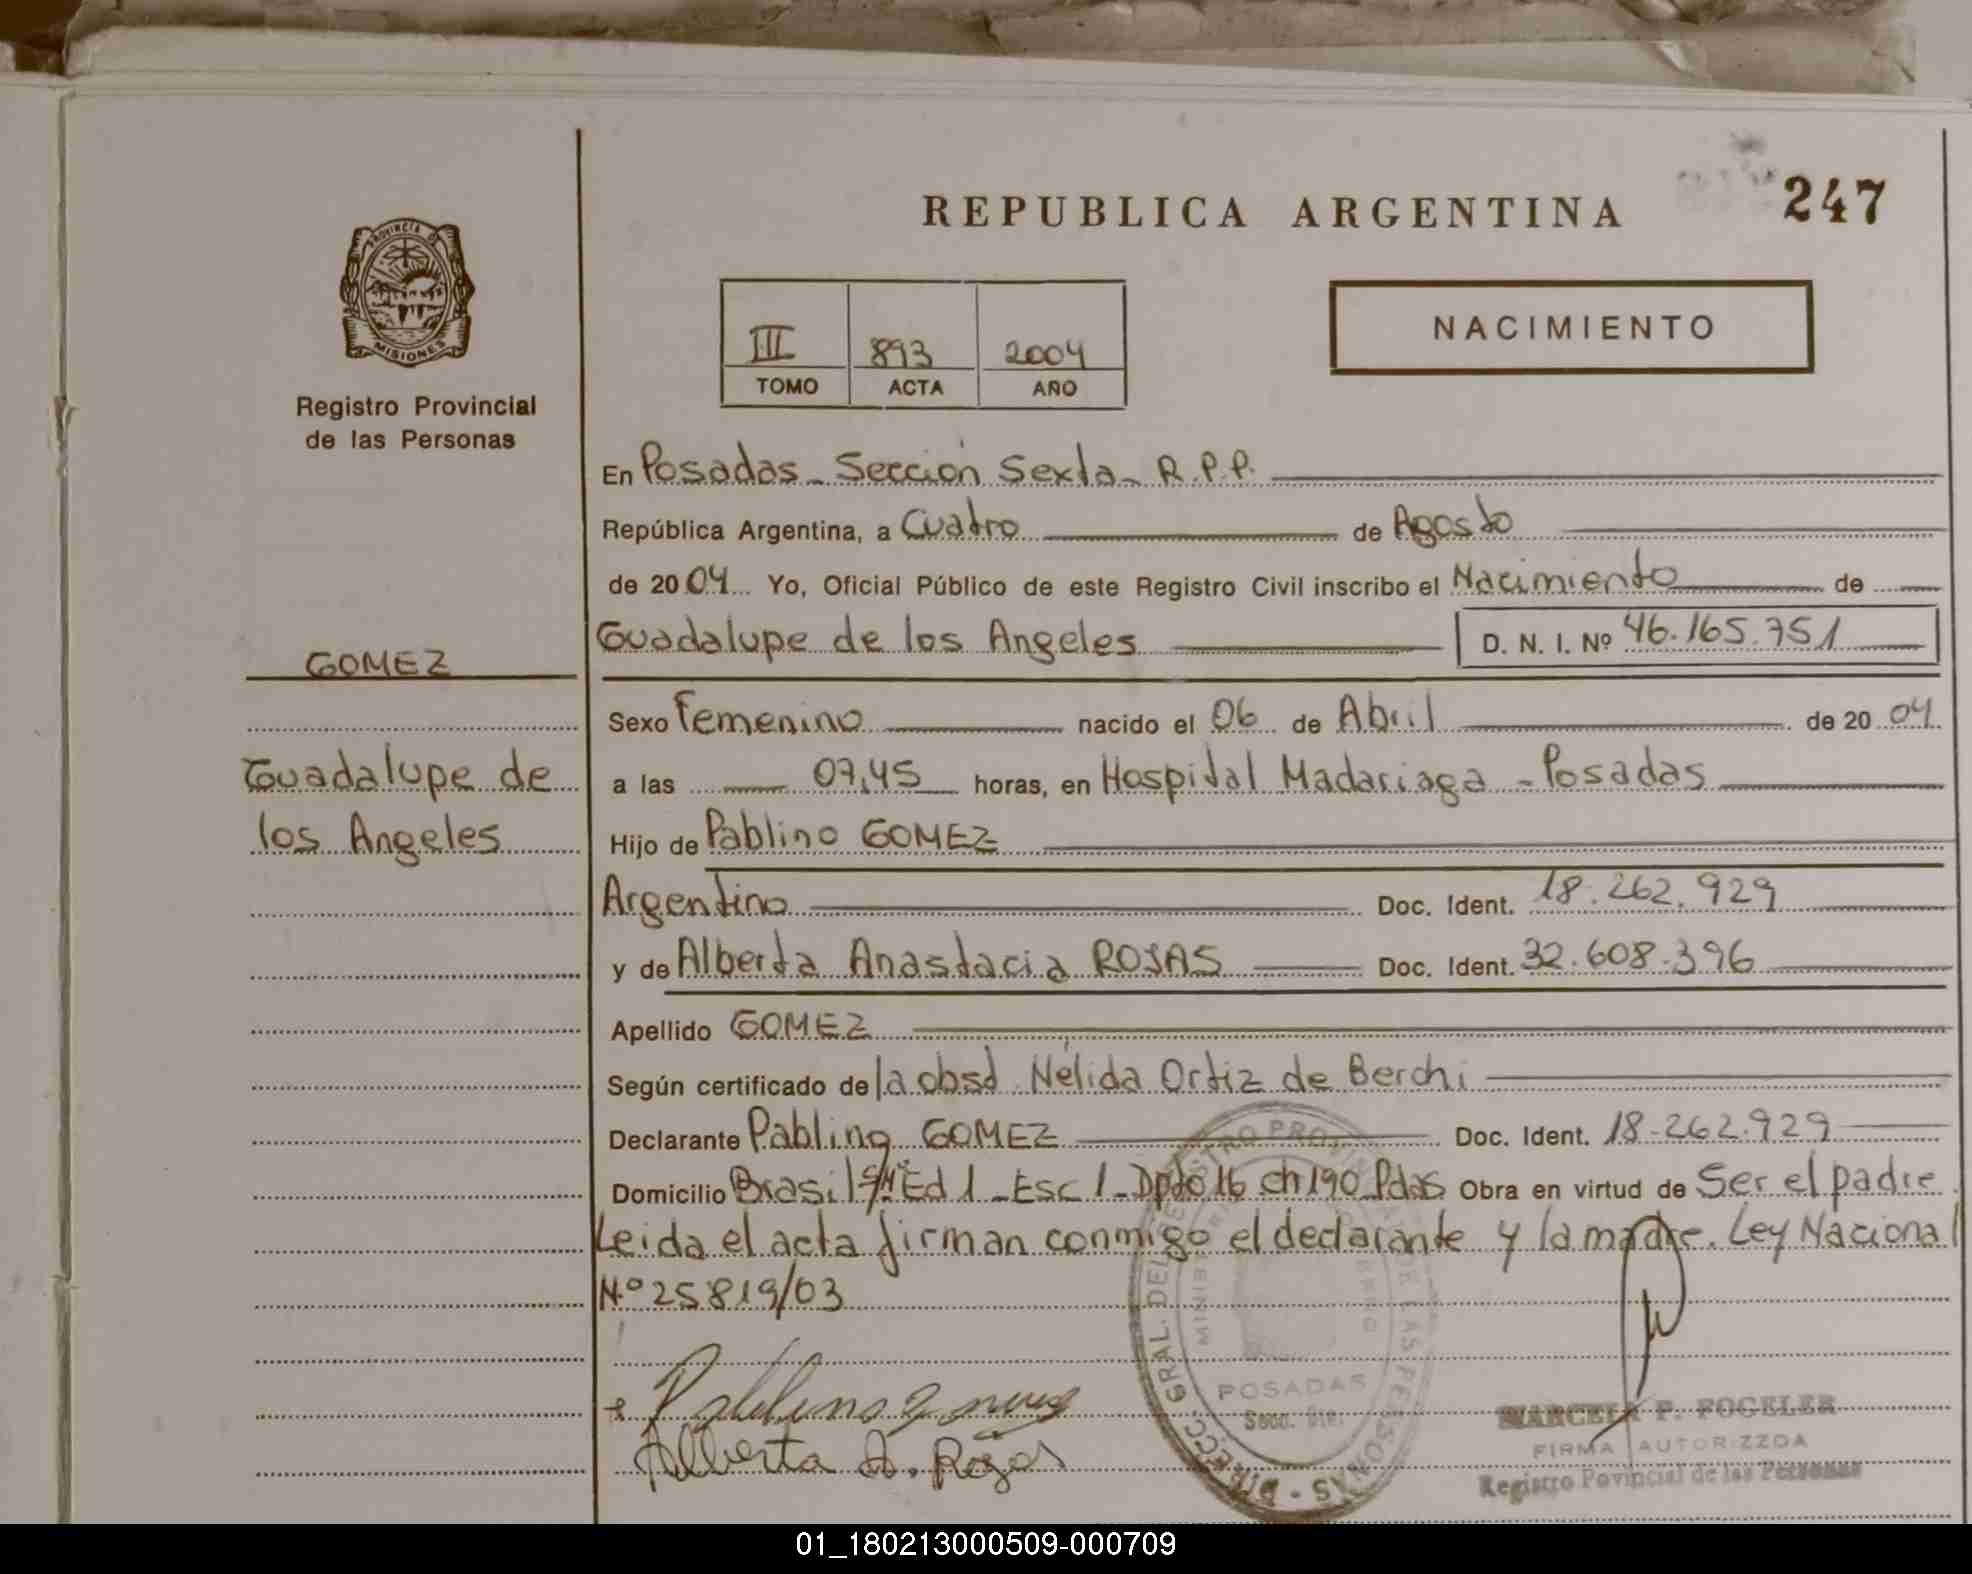 REPUBLICA ARGENTINA
247
PROVINCIA DE
MISIONES
Registro Provincial
de las Personas
III 893 2004
TOMO ACTA AÑO
NACIMIENTO
En Posadas - Sección Sexta - R.P.P.
República Argentina, a Cuatro de Agosto
de 2004 Yo, Oficial Público de este Registro Civil inscribo el Nacimiento de
Guadalupe de los Angeles D. N. I. Nº 46.165.751
GOMEZ
Guadalupe de
los Angeles
Sexo Femenino nacido el 06 de Abril de 2004
a las 07,45 horas, en Hospital Madariaga - Posadas
Hijo de Pablino GOMEZ
Argentino Doc. Ident. 18.262.929
y de Alberta Anastacia ROJAS Doc. Ident. 32.608.396
Apellido GOMEZ
Según certificado de la obst Nélida Ortiz de Berchi
Declarante Pablino GOMEZ Doc. Ident. 18.262.929
Domicilio Brasil S/Nº Ed 1 - Esc 1 - Dpto 16 ch 190 Pdas Obra en virtud de Ser el padre.
Leida el acta firman conmigo el declarante y la madre. Ley Nacional
Nº 25819/03
Alberta A. Rojas
DIRECC. GRAL. DEL REGISTRO PROVINCIAL DE LAS PERSONAS
POSADAS
MARCELA P. FOGELER
FIRMA AUTORIZZDA
Registro Povincial de las Personas
01_180213000509-000709